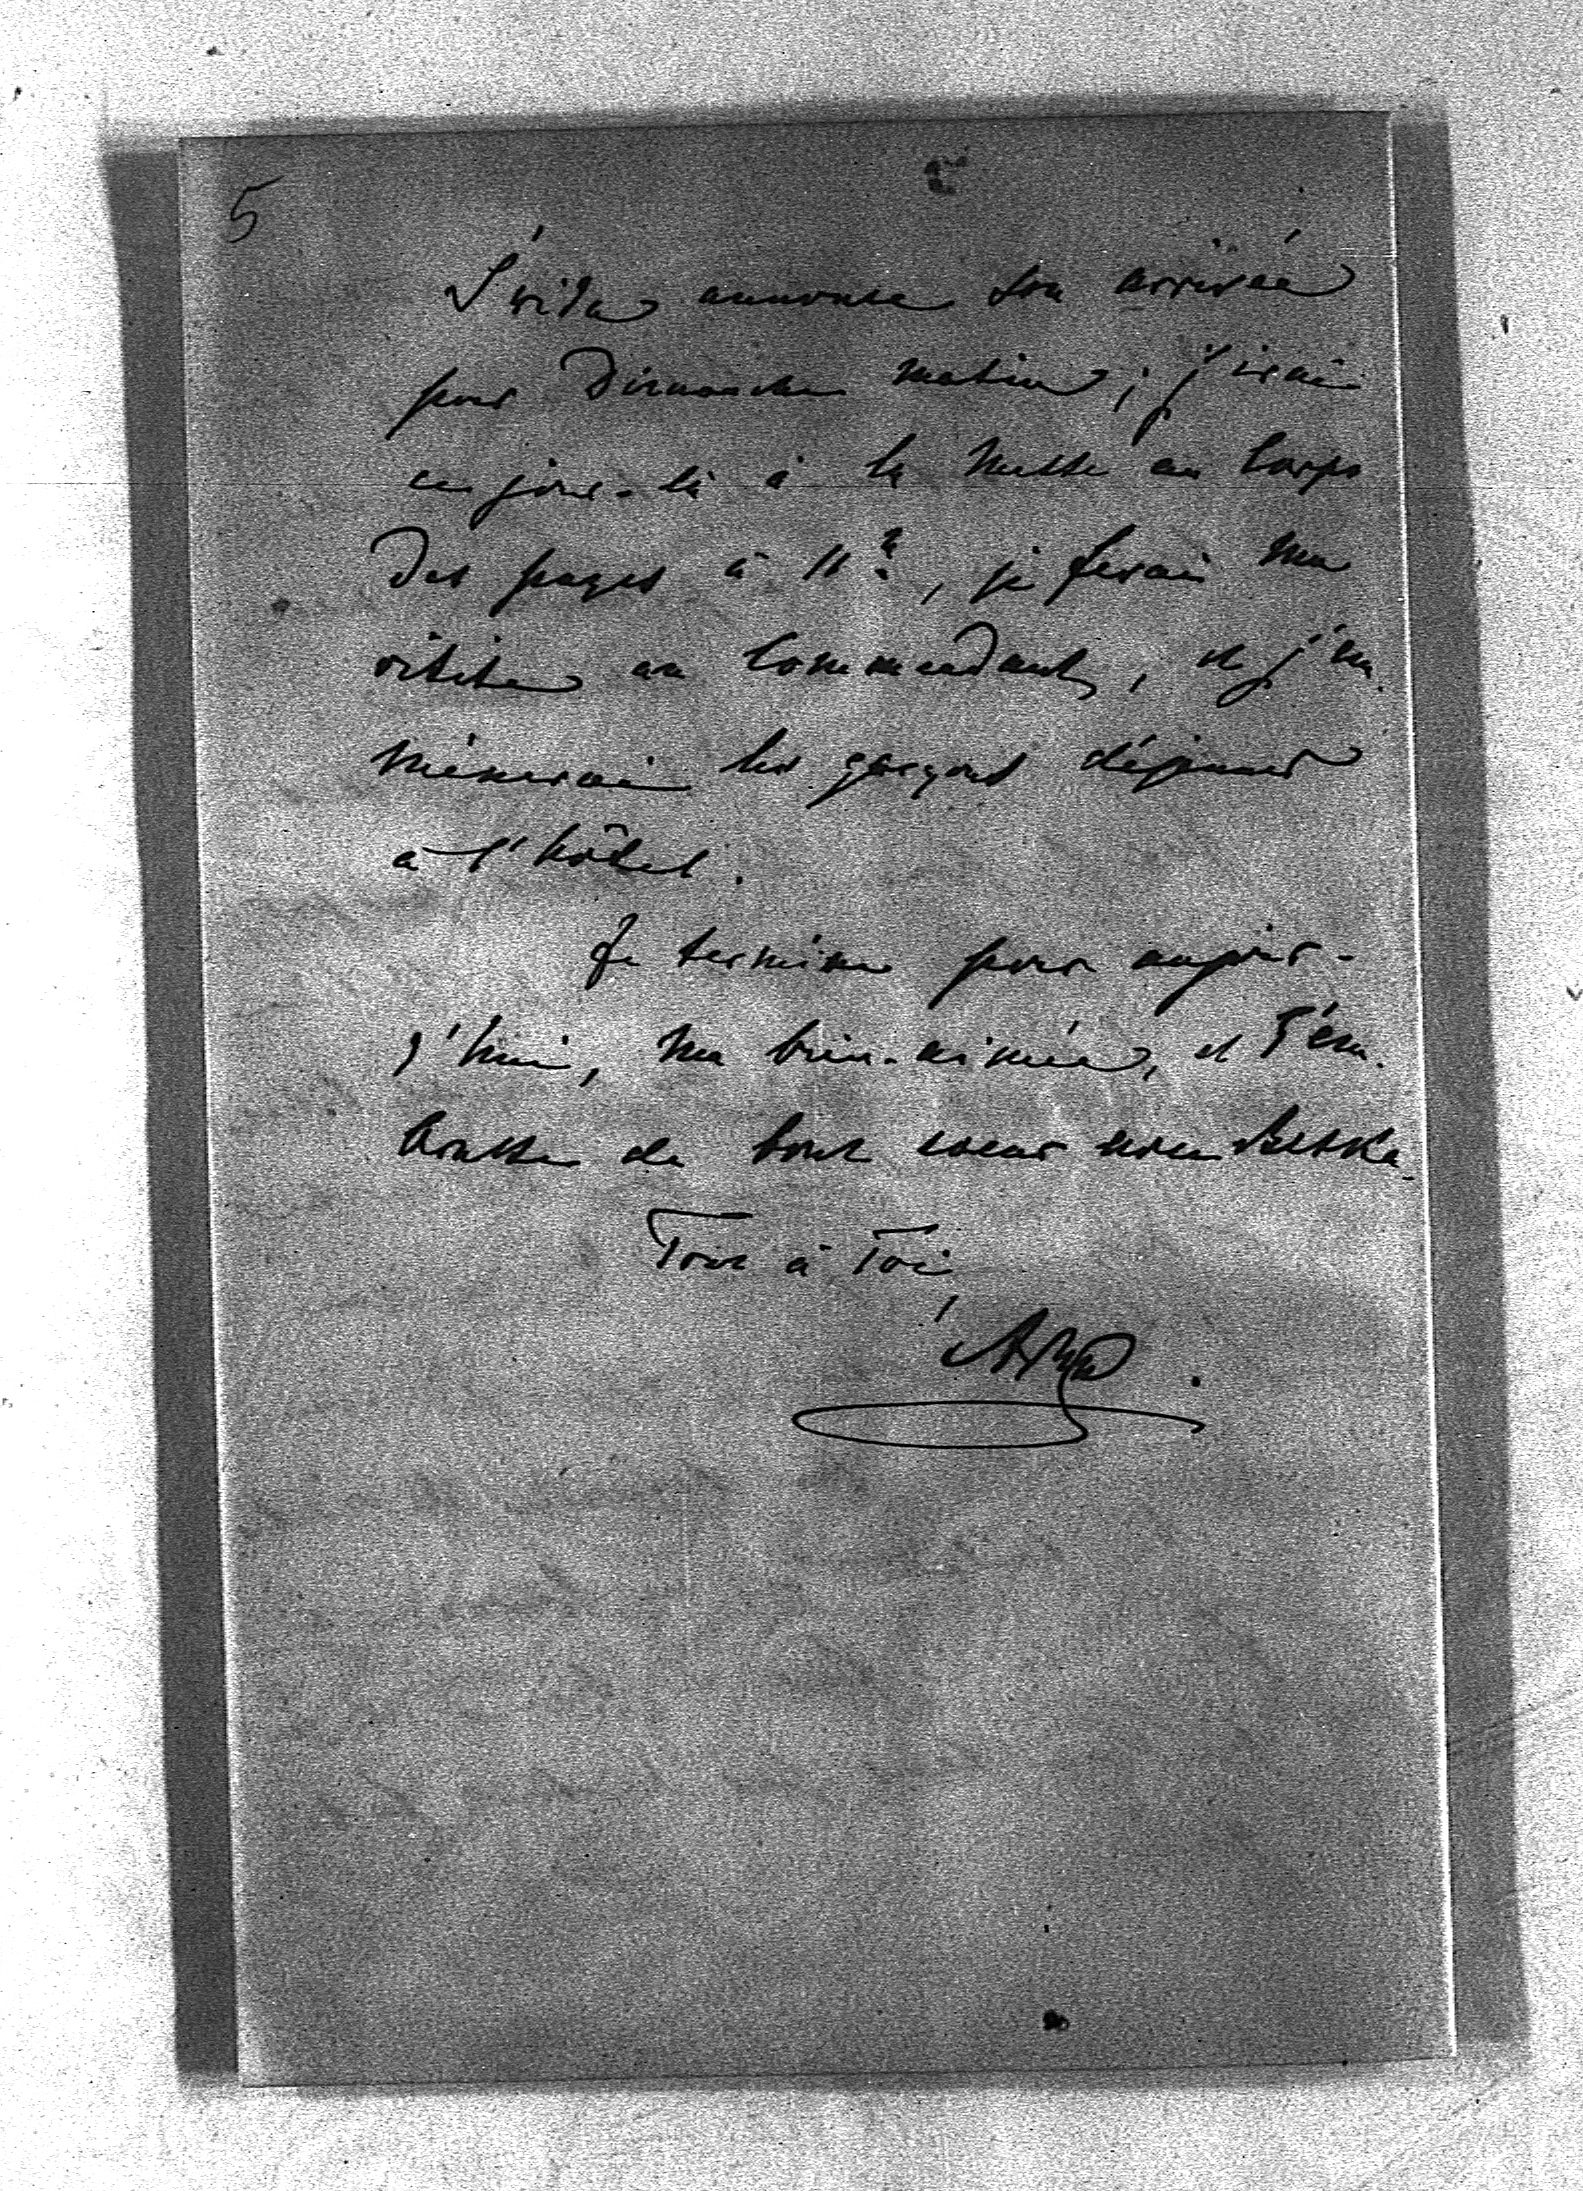 5
Svida annonce son arrivée
pour Dimanche matin; j'irai
ce jour-là à la messe au Corps
des pages à 11 h., je ferai ma
visite au Commandant, et j'em-
mènerai les garçons déjeuner
à l'hôtel.
Je termine pour aujour-
d'hui, ma bien-aimée, et T'em-
brasse de tout coeur
Tout à Toi,